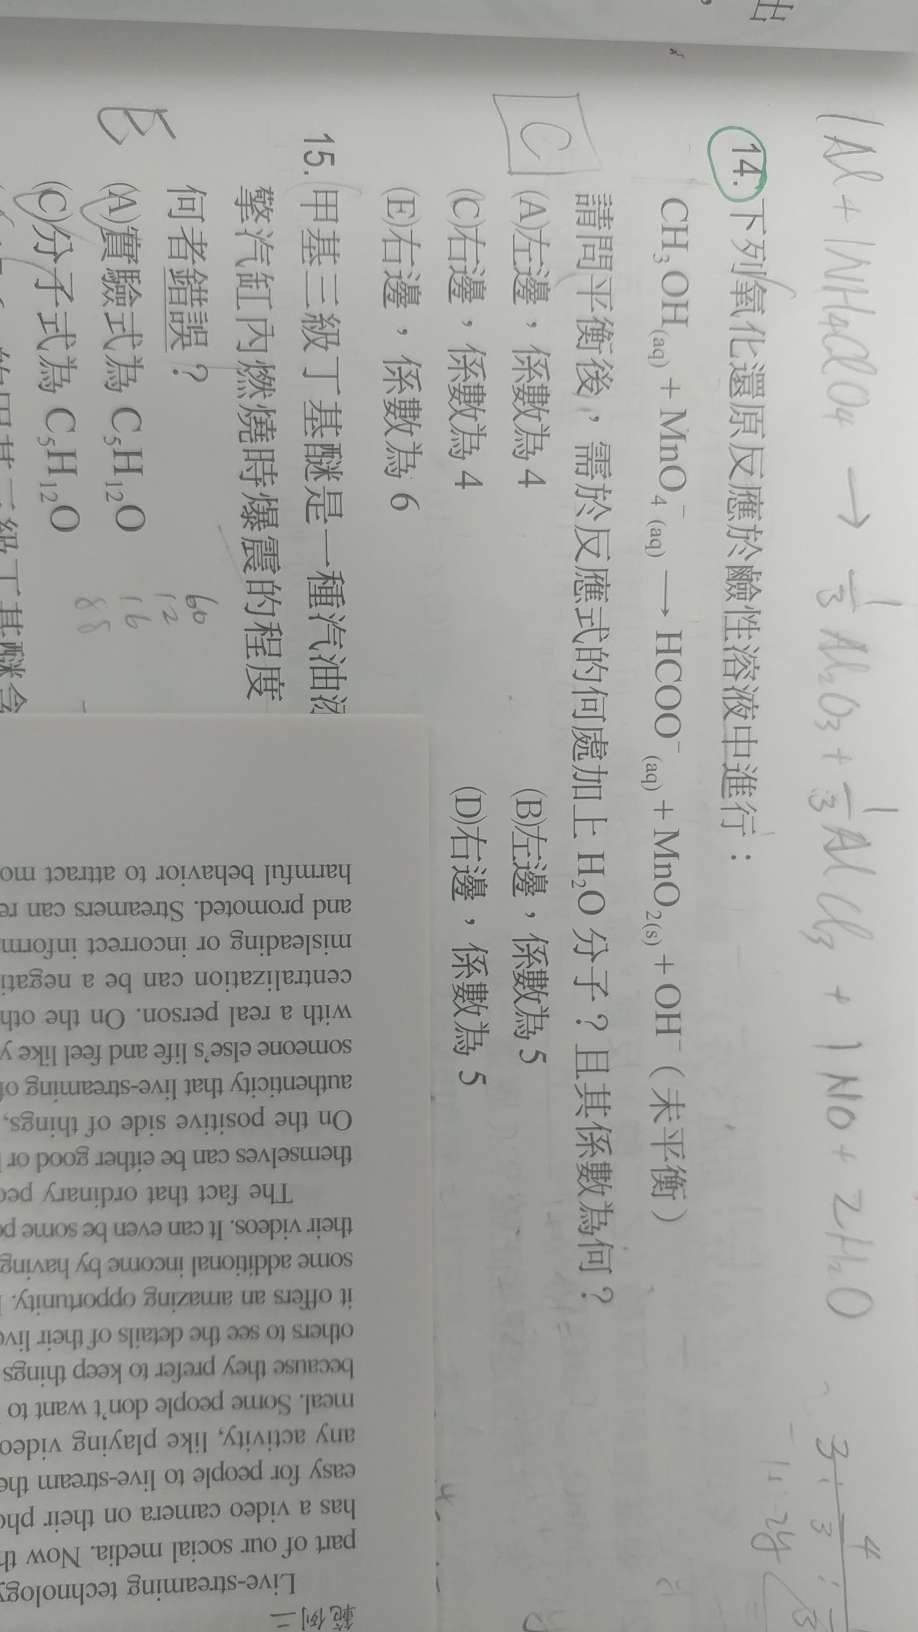 出
1Al + 1NH4ClO4 → 1/3 Al2O3 + 1/3 AlCl3 + 1 NO + 2H2O
14. 下列氧化還原反應於鹼性溶液中進行：
CH₃OH(aq) + MnO₄⁻(aq) → HCOO⁻(aq) + MnO₂(s) + OH⁻（未平衡）
請問平衡後，需於反應式的何處加上 H₂O 分子？且其係數為何？
C
(A)左邊，係數為 4 (B)左邊，係數為 5
(C)右邊，係數為 4 (D)右邊，係數為 5
(E)右邊，係數為 6
15. 甲基三級丁基醚是一種汽油
擎汽缸內燃燒時爆震的程度
何者錯誤？
E
(A)實驗式為 C₅H₁₂O
(C)分子式為 C₅H₁₂O
60
12
16
88
範例二
Live-streaming technology
part of our social media. Now th
has a video camera on their pho
easy for people to live-stream the
any activity, like playing video
meal. Some people don't want to
because they prefer to keep things
others to see the details of their liv
it offers an amazing opportunity.
some additional income by having
their videos. It can even be some pe
The fact that ordinary peo
themselves can be either good or
On the positive side of things,
authenticity that live-streaming of
someone else's life and feel like y
with a real person. On the oth
centralization can be a negati
misleading or incorrect inform
and promoted. Streamers can re
harmful behavior to attract mo